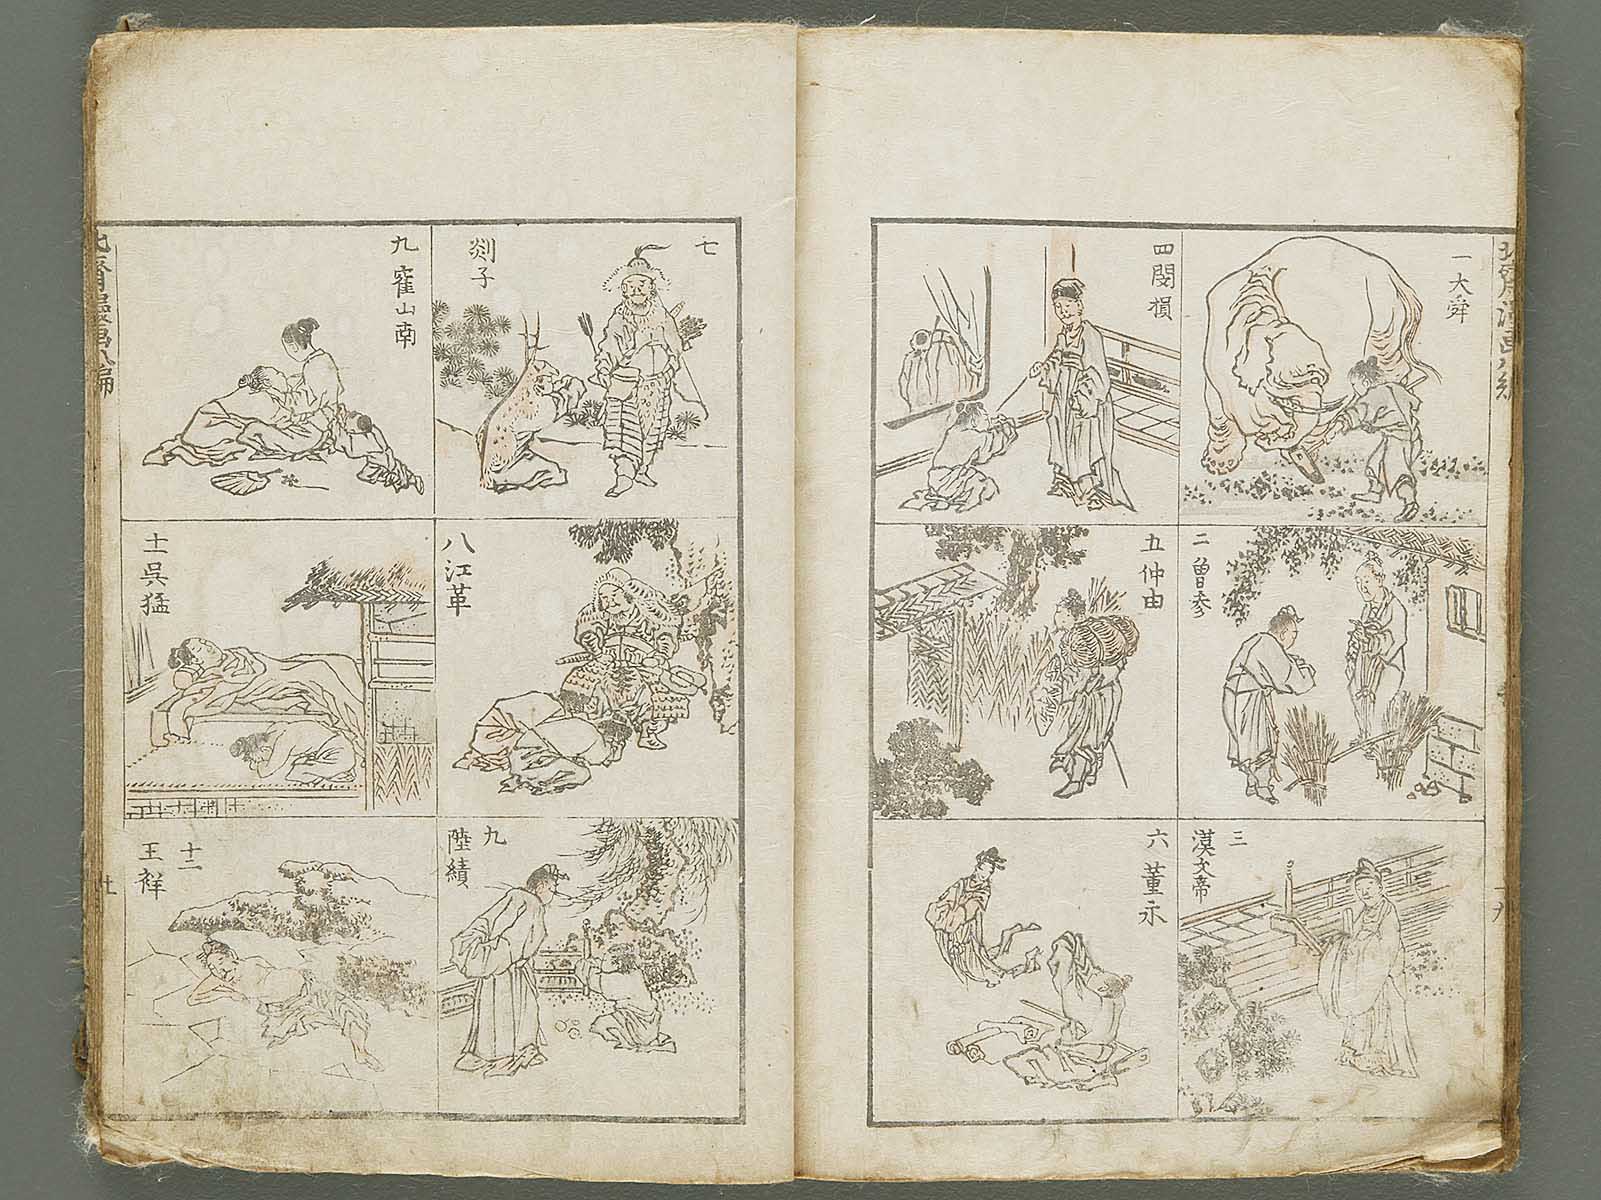 北斎漫画八編
一大舜
二曽参
三
漢文帝
四閔損
五仲由
六董永
七
剡子
八江革
九
陸績
九崔山南
十一呉猛
十二
王祥
北斎漫画八編
廿